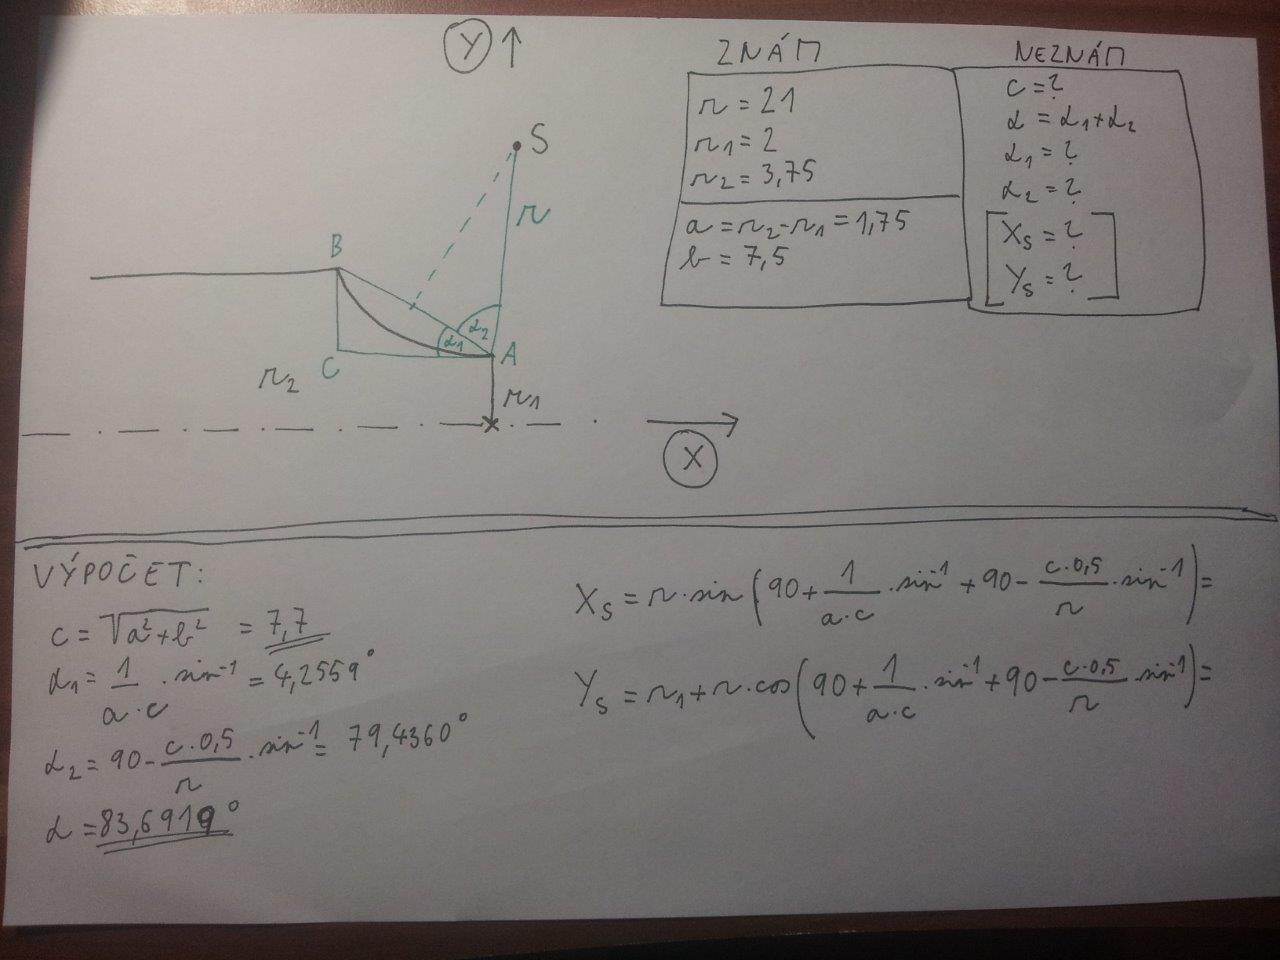 Y ↑
S
r
B
α1
α2
A
C
r2
r1
X
ZNÁM
r = 21
r1 = 2
r2 = 3,75
a = r2-r1 = 1,75
b = 7,5
NEZNÁM
c = ?
α = α1+α2
α1 = ?
α2 = ?
[XS = ?
YS = ?]
VÝPOČET:
c = √(a²+b²) = 7,7
α1 = 1/(a·c) · sin⁻¹ = 4,2559°
α2 = 90 - (c·0,5)/r · sin⁻¹ = 79,4360°
α = 83,6919°
XS = r·sin(90 + 1/(a·c) · sin⁻¹ + 90 - (c·0,5)/r · sin⁻¹) =
YS = r1 + r·cos(90 + 1/(a·c) · sin⁻¹ + 90 - (c·0,5)/r · sin⁻¹) =